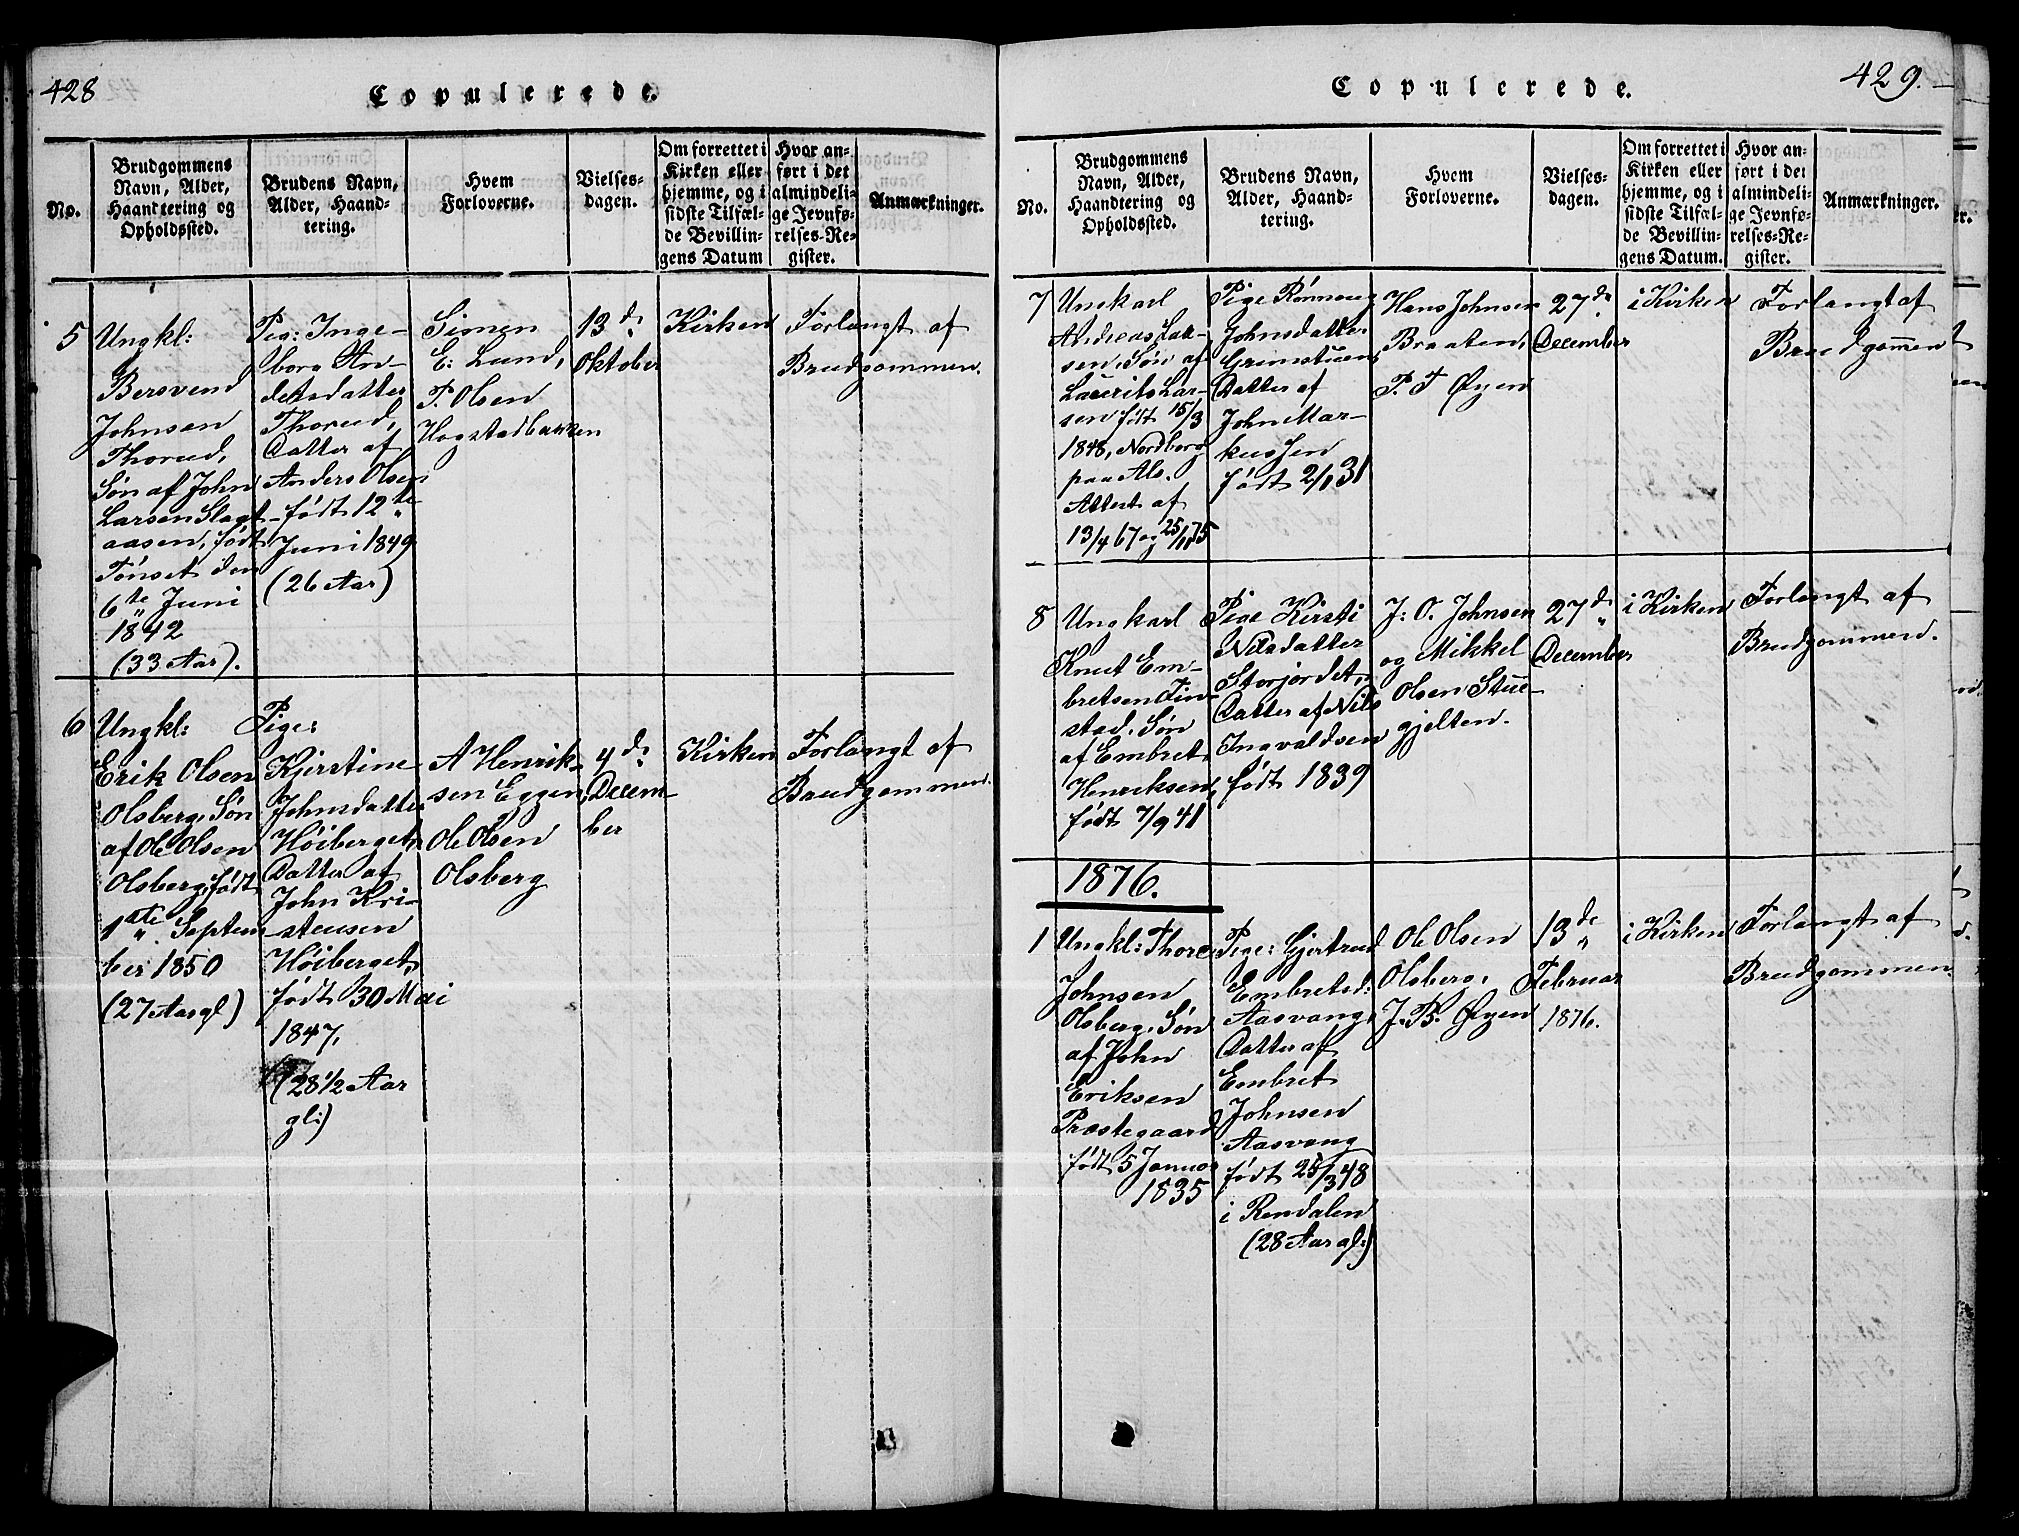 428
Copulerede.
No.
Brudgommens
Navn, Alder,
Haandtering og
Opholdssted.
Brudens Navn,
Alder, Haand-
tering.
Hvem
Forloverne.
Vielses-
dagen.
Om forrettet i
Kirken eller
hjemme, og i
sidste Tilfæl-
de Bevillin-
gens Datum
Hvor an-
ført i det
almindeli-
ge Jevnfø-
relses-Re-
gister.
Anmærkninger.
5
Ungkl:
Bersvend
Johnsen
Thorud,
Søn af John
Larsen Slagt-
aasen, født
Tønset den
6te Juni
1842
(33 Aar).
Pig: Inge-
borg An-
dersdatter
Thorud,
Datter af
Anders Olsen
født 12te
Juni 1849
(26 Aar)
Simen
E: Lund,
P. Olsen
Hogstadbakken
13d.
Oktober
Kirken
Forlangt af
Brudgommen.
6
Ungkl:
Erik Olsen
Olsberg, Søn
af Ole Olsen
Olsberg, født
1ste Septem-
ber 1850
(27 Aar gl)
Pige:
Kjerstine
Johnsdatter
Höiberget,
Datter af
John Kri-
stensen
Höiberget,
født 30 Mai
1847,
(28 1/2 Aar
gl:)
A Henrik-
sen Eggen,
Ole Olsen
Olsberg
4d.
Decem-
ber
Kirken
Forlangt af
Brudgommen.
429.
Copulerede.
No.
Brudgommens
Navn, Alder,
Haandtering og
Opholdssted.
Brudens Navn,
Alder, Haand-
tering.
Hvem
Forloverne.
Vielses-
dagen.
Om forrettet i
Kirken eller
hjemme, og i
sidste Tilfæl-
de Bevillin-
gens Datum.
Hvor an-
ført i det
almindeli-
ge Jevnfø-
relses-Re-
gister.
Anmærkninger.
7
Ungkarl
Andreas Lau-
sen, Søn af
Laurits Lar-
sen født 15/3
1848, Nordborg
paa Als.
Attest af
13/4 67 og 25/11 75
Pige Rönnaug
Johnsdatter
Grimstuen,
Datter af
John Mar-
kussen
født 2/1 31
Hans Johnsen
Braaten,
P. T Øyen
27de
December
i Kirken
Forlangt af
Brudgommen
8
Ungkarl
Knut Em-
bretsen Fin-
stad, Søn
af Embret
Henriksen,
født 7/9 41
Pige Kirsti
Nilsdatter
Storjordet,
Datter af Nils
Ingvaldsen
født 1839
J: O. Johnsen
og Mikkel
Olsen Stue-
gjelten.
27d
December
i Kirken
Forlangt af
Brudgommen.
1876.
1
Ungkl: Thore
Johnsen
Olsberg, Søn
af John
Eriksen
Præstegaard
født 5 Januar
1835
Pige: Gjertrud
Embretsd:
Aasvang,
Datter af
Embret
Johnsen
Aasvang
født 25/3 48
i Rendalen
(28 Aar gl:)
Ole Olsen
Olsberg,
J. B. Øyen
13de
Februar
1876.
i Kirken
Forlangt af
Brudgommen.